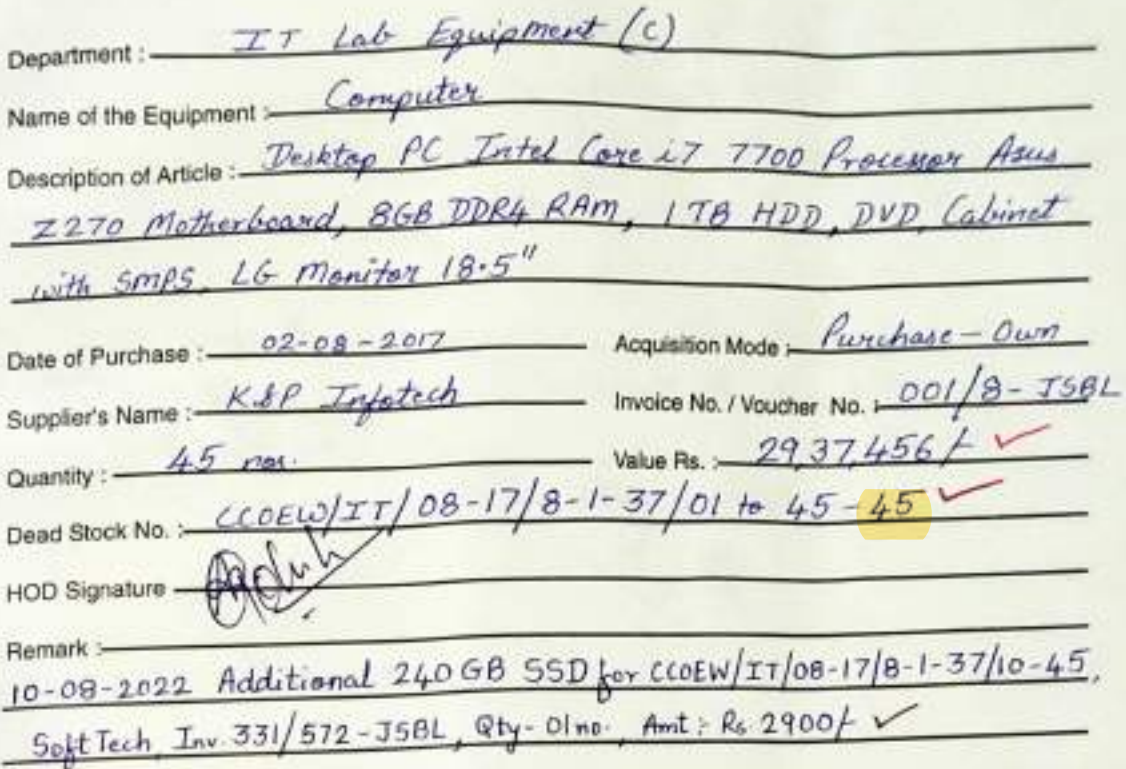 Department : IT Lab Equipment (C)
Name of the Equipment : Computer
Description of Article : Desktop PC Intel Core i7 7700 Processor Asus
Z270 Motherboard, 8GB DDR4 RAM, 1TB HDD, DVD, Cabinet
with SMPS, LG Monitor 18.5"
Date of Purchase : 02-08-2017 Acquisition Mode : Purchase - Own
Supplier's Name : K&P Infotech Invoice No. / Voucher No. : 001/8-JSBL
Quantity : 45 nos. Value Rs. : 29,37,456/-
Dead Stock No. : CCOEW/IT/08-17/8-1-37/01 to 45 - 45
HOD Signature
Remark :
10-08-2022 Additional 240GB SSD for CCOEW/IT/08-17/8-1-37/10-45,
SoftTech, Inv. 331/572-JSBL, Qty- 01no. Amt: Rs. 2900/-